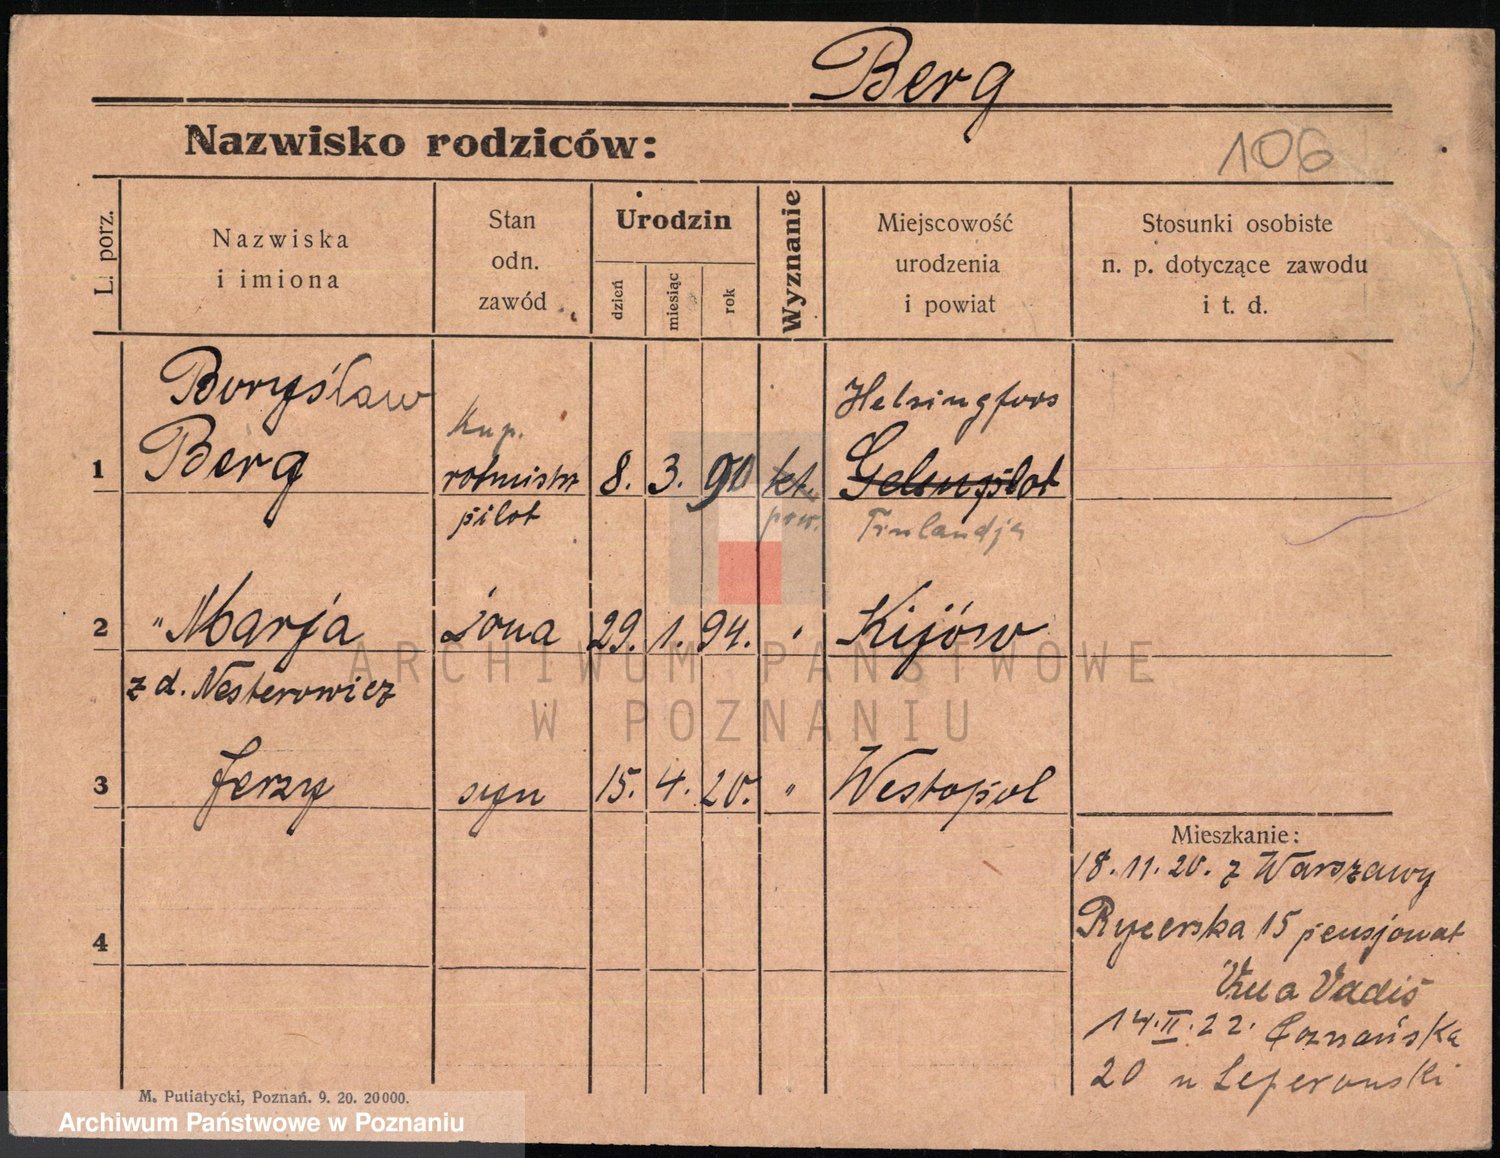 Berg
Nazwisko rodziców:
106
L. porz.
Nazwiska
i imiona
Stan
odn.
zawód
Urodzin
dzień
miesiąc
rok
Wyznanie
Miejscowość
urodzenia
i powiat
Stosunki osobiste
n. p. dotyczące zawodu
i t. d.
Borysław
Helsingfors
Kup.
1 Berg rotmistr 8. 3. 90
pilot
praw. Finlandja
2 " Marja żona 29. 1. 94. " Kijów
z d. Nesterowicz
3 Jerzy syn 15. 4. 20. " Westopol
Mieszkanie:
18.11.20. z Warszawy
Rycerska 15 pensjonat
Vadis
4
14.II.22. Poznańska
20 u
M. Putiatycki, Poznań. 9. 20. 20000.
ARCHIWUM PAŃSTWOWE
W POZNANIU
Archiwum Państwowe w Poznaniu